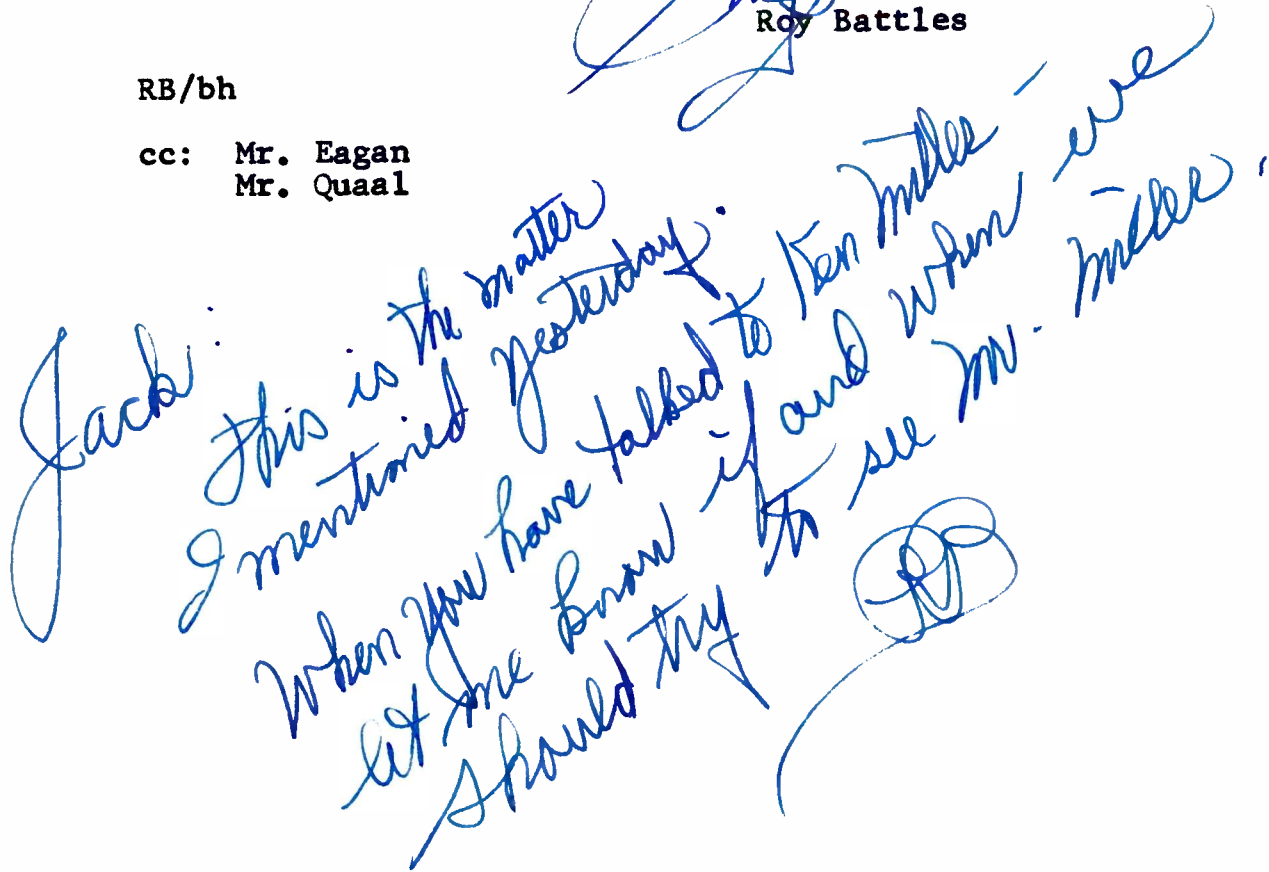 Roy Battles
RB/bh
cc: Mr. Eagan
Mr. Quaal
Jack:
This is the matter
I mentioned yesterday.
When you have talked to Ken Miller -
let me know if and when we
should try to see Mr. Miller.